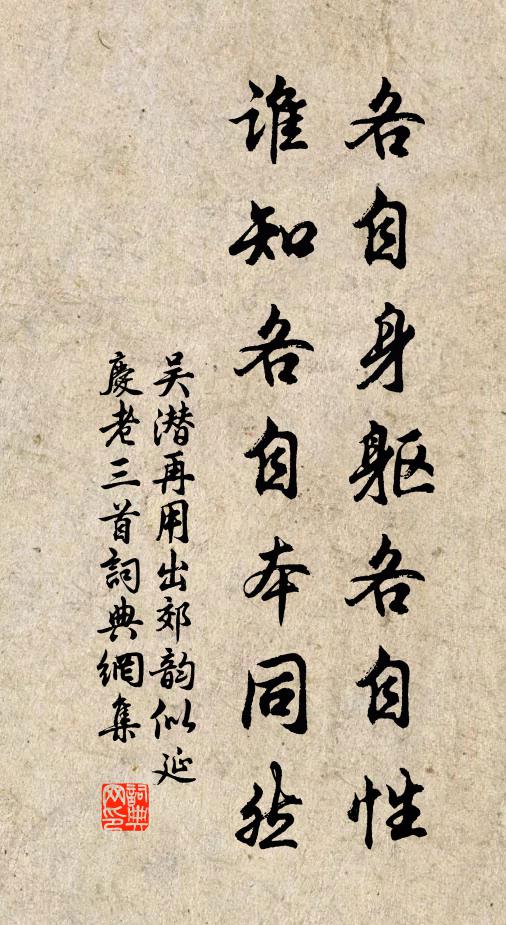 各自身躯各自性
谁知各自本同然
吴潜再用出郊韵似延
慶老三首詞典網集
詞典
网印